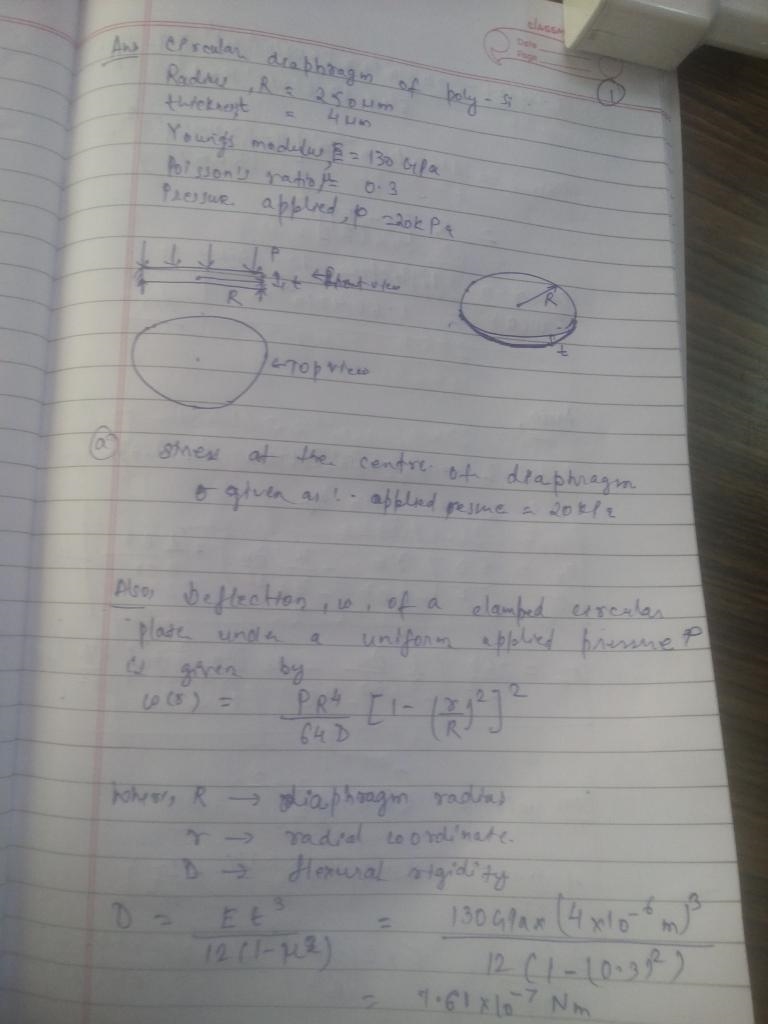 classm
Date
Page
1
Ans Circular diaphragm of poly-si
Radius, R = 250 um
thickness = 4 um
Young's modulus, E = 130 GPa
Poisson's ratio, μ = 0.3
Pressure applied, p = 20kPa
P
t ← Front view
R
R
t
← Top view
a stress at the centre of diaphragm
given as :- applied = 20kPa
Also, Deflection, w, of a clamped circular
plate under a uniform applied pressure P
is given by
w(r) = PR⁴/64D [1-(r/R)²]²
where, R → diaphragm radius
r → radial coordinate.
D → flexural rigidity
D = Et³/12(1-μ²) = 130GPa x (4x10⁻⁶ m)³/12(1-(0.3)²)
= 7.61 x 10⁻⁷ Nm